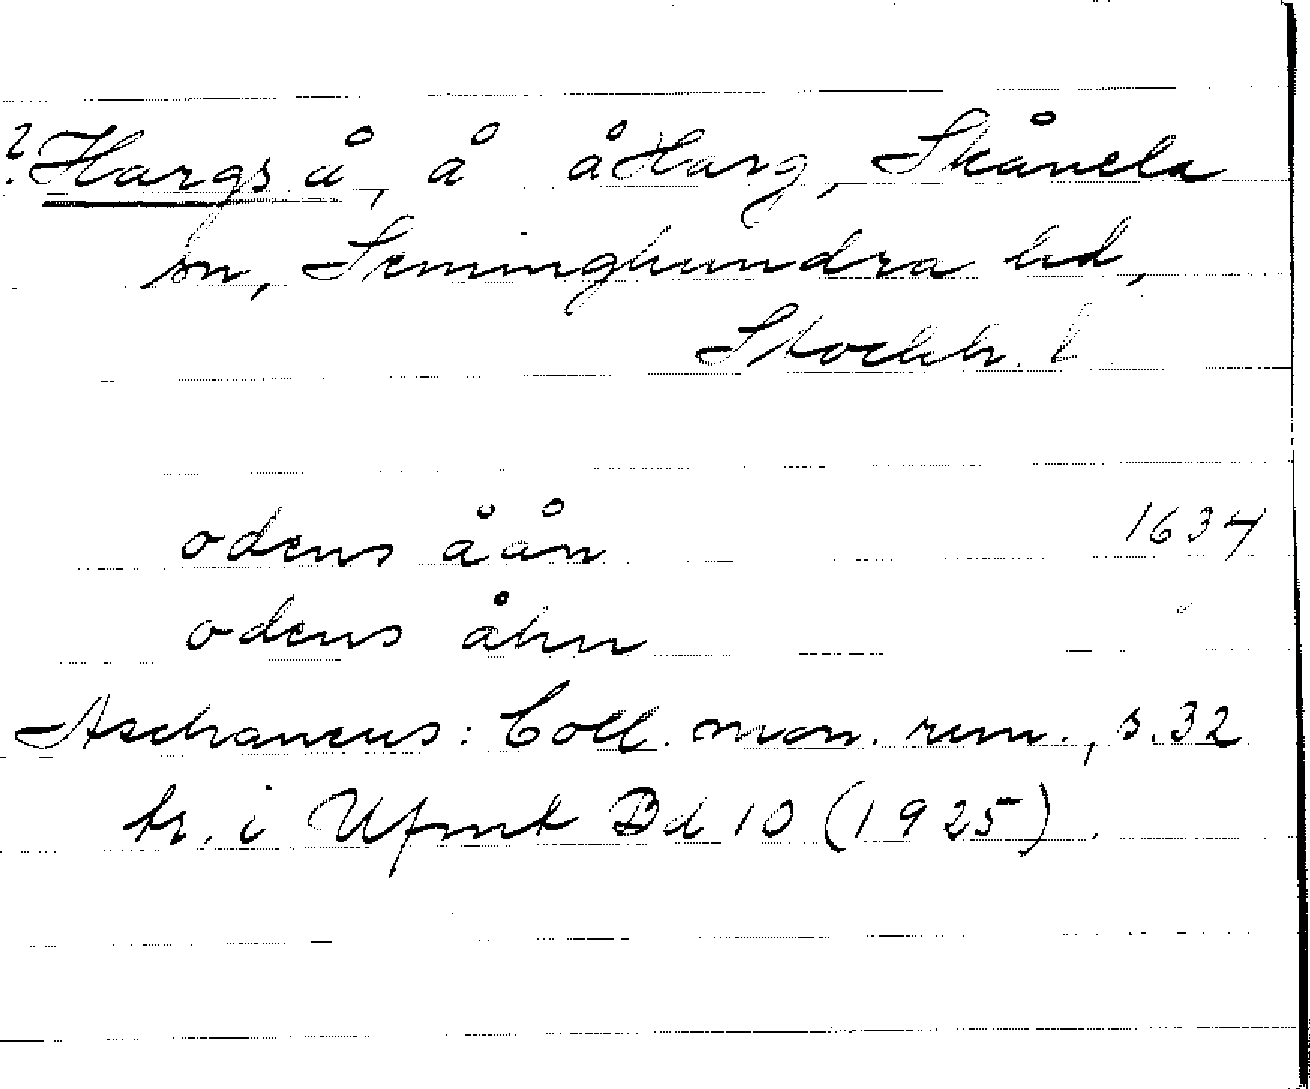 ? Hargs å, å å Harg, Skånela
sn, Seminghundra hd,
Stockh. l
odens åån 1634
odens åhn "
Aschaneus: Coll. mon. run., s. 32
tr. i Ufmt Bd 10 (1925).